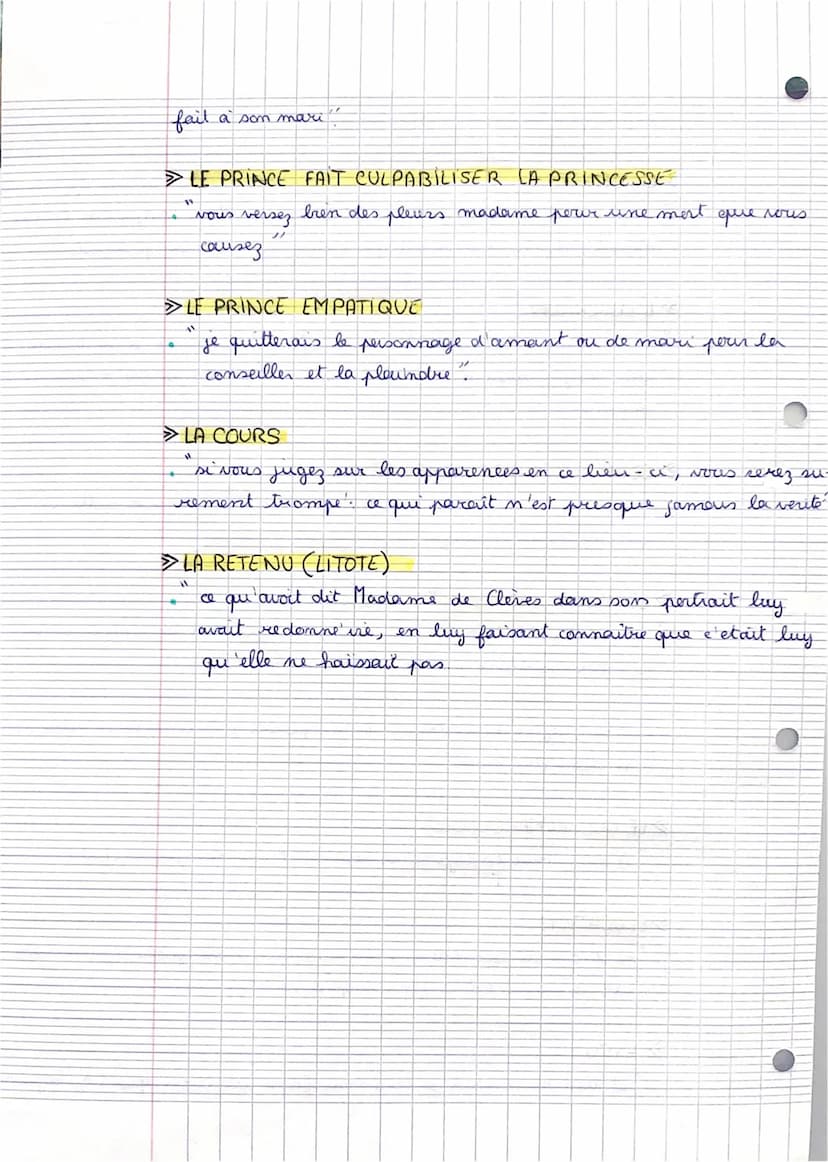 fait à son mari"
⪢ LE PRINCE FAIT CULPABILISER LA PRINCESSE
• "vous versez bien des pleurs madame pour une mort que vous
causez"
⪢ LE PRINCE EMPATIQUE
• "je quitterais le personnage d'amant ou de mari pour la
conseiller et la plaindre".
⪢ LA COURS
• "si vous jugez sur les apparences en ce lieu-ci, vous serez su-
rement trompé: ce qui paraît n'est presque jamais la verité
⪢ LA RETENU (LITOTE)
• "ce qu'avoit dit Madame de Clèves dans son portrait luy
avait redonné vie, en luy faisant connaître que c'etait luy
qu'elle ne haïssait pas.